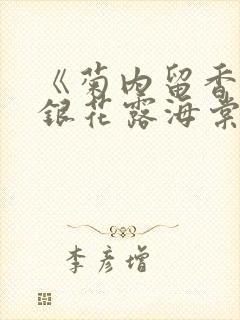 《菊内留香
银花露海棠
李彦增